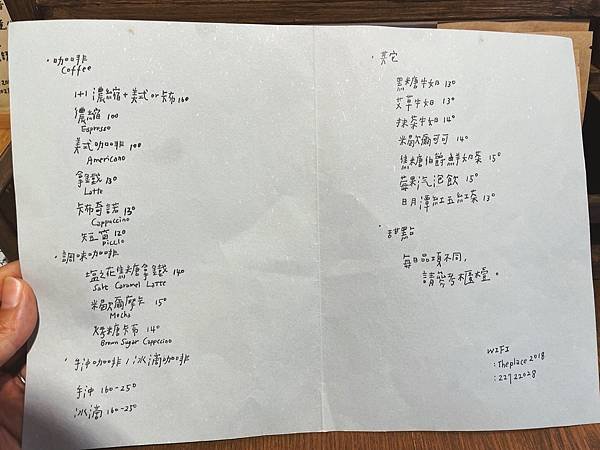 ·咖啡
Coffee
1+1 濃縮+美式or卡布 160
濃縮 100
Espresso
美式咖啡 100
Americano
拿鐵 130
Latte
卡布奇諾 130
Cappuccino
短笛 120
Piccolo
·調味咖啡
塩之花焦糖拿鐵 140
Salt Caramel Latte
米歇爾摩卡 150
Mocha
烤糖卡布 140
Brown Sugar Cappccino
·手沖咖啡/冰滴咖啡
手沖 160-250
冰滴 160-250
·其它
黑糖牛奶 130
艾草牛奶 130
抹茶牛奶 140
米歇爾可可 140
焦糖伯爵鮮奶茶 150
莓果汽泡飲 150
日月潭紅玉紅茶 130
·甜點
每日品項不同,
請參考櫃檯。
WIFI
:Theplace 2018
:22722028